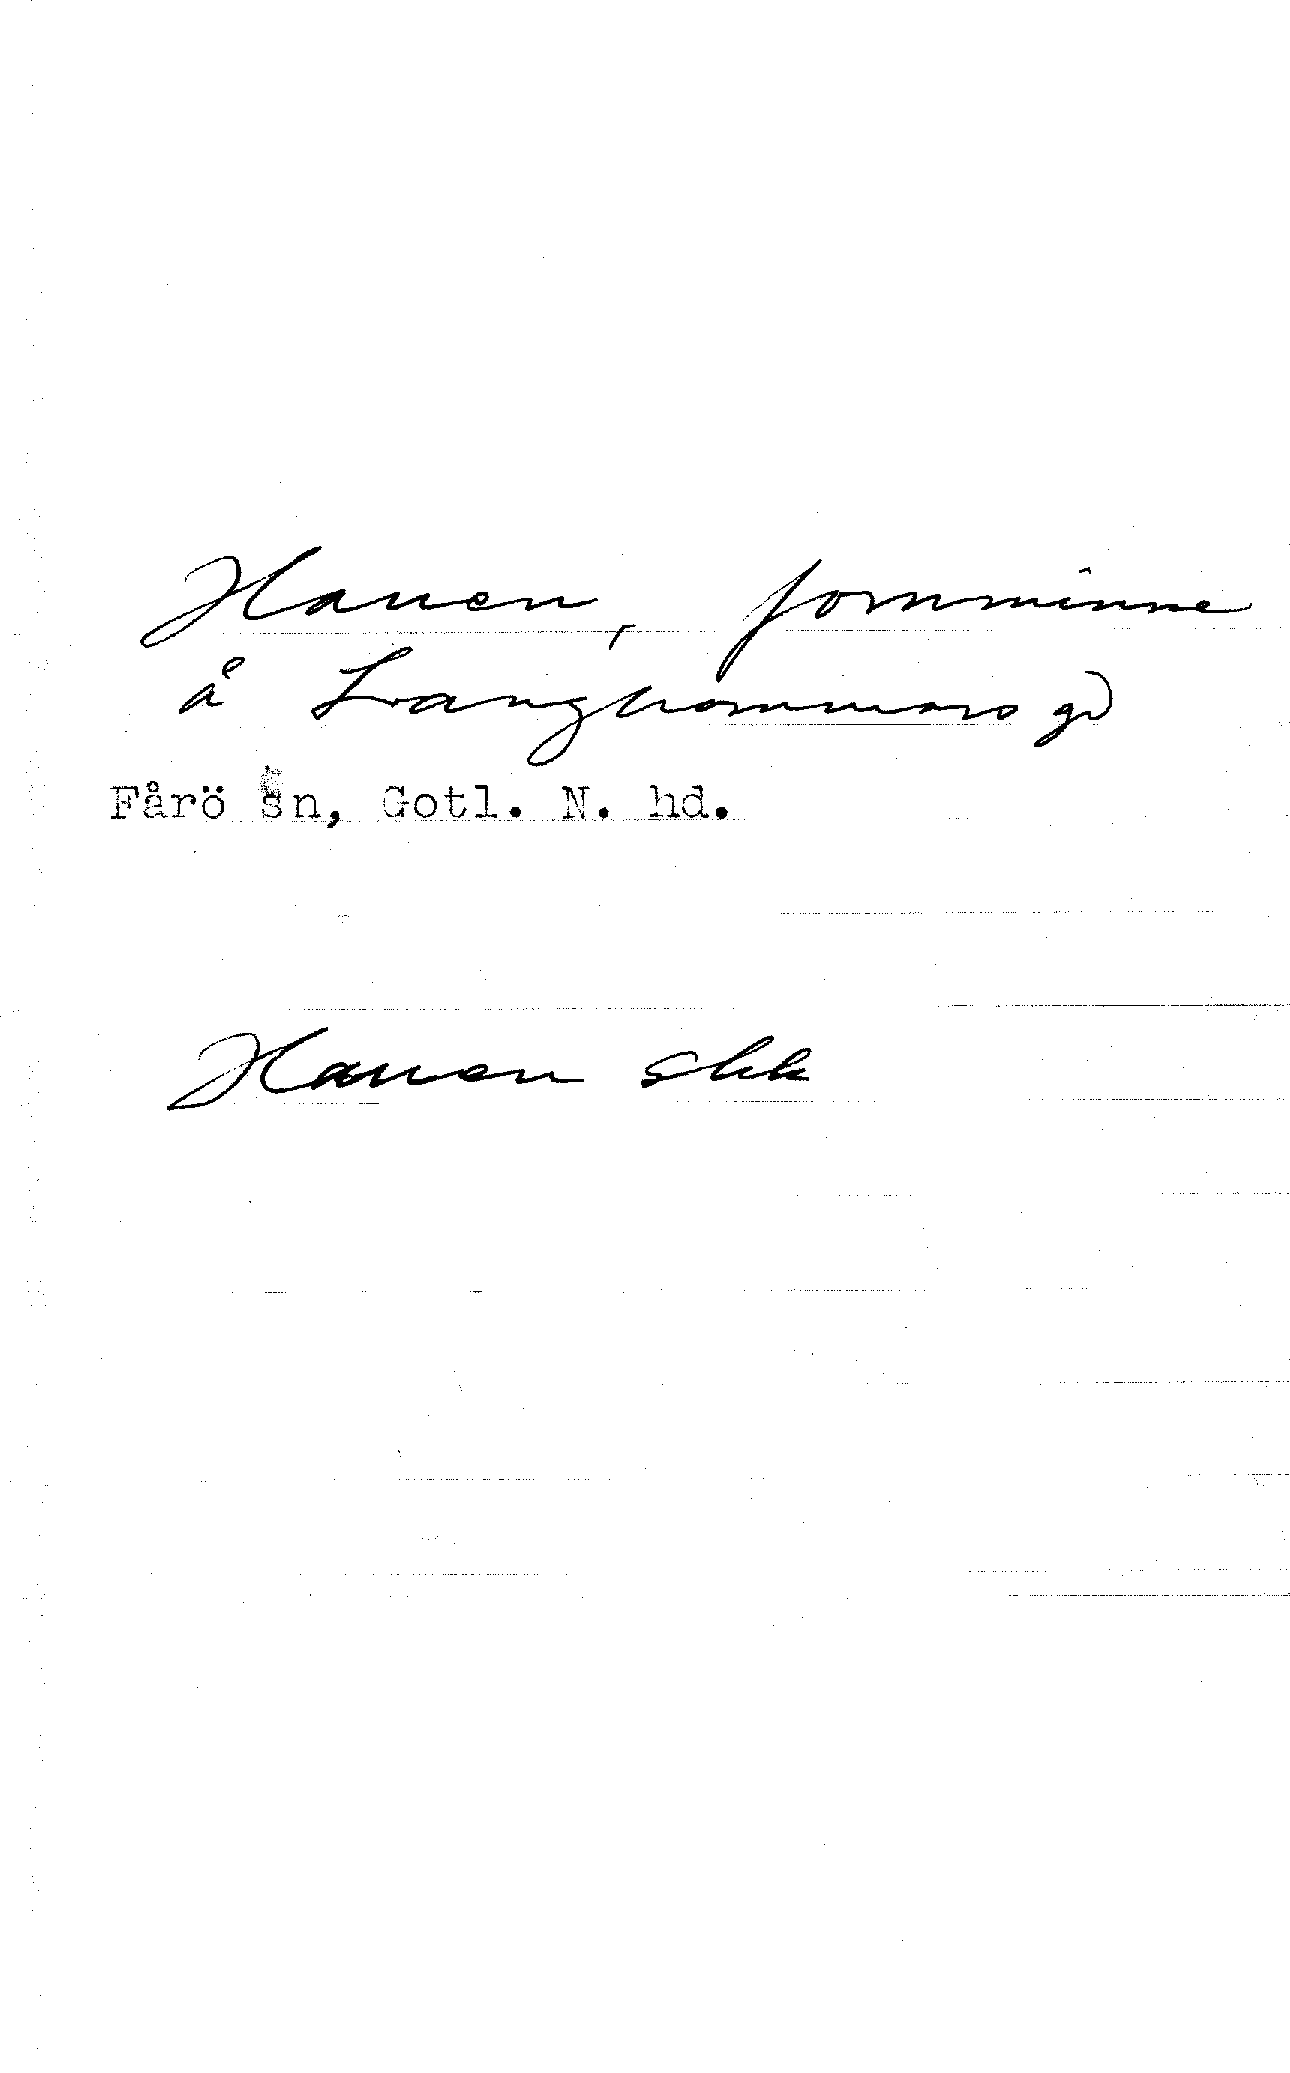 Hauen, fornminne
å Langhammars gd
Fårö sn, Gotl. N. hd.
Hauen skk